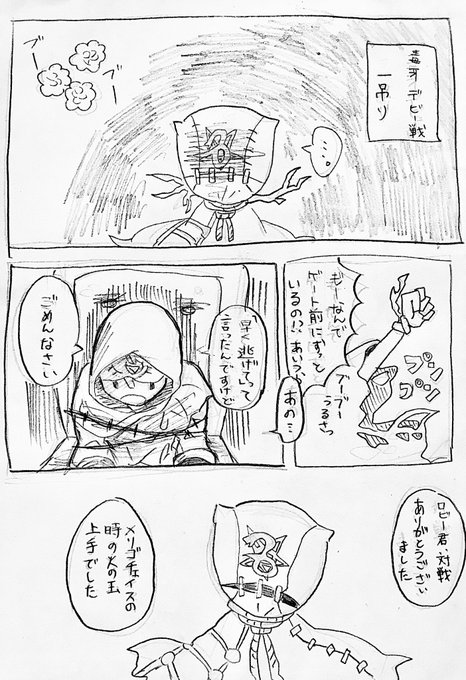 毒牙 デビー戦
一吊り
…。
ブー
ブー
もーなんで
ゲート前にずっと
いるの!?あいつら
ブーブー
うるさっ
プン
プン
あの…
早く逃げろって
言ったんですけど
ごめんなさい
ロビー君、対戦
ありがとうござい
ました
メリゴチェイスの
時の火の玉
上手でした